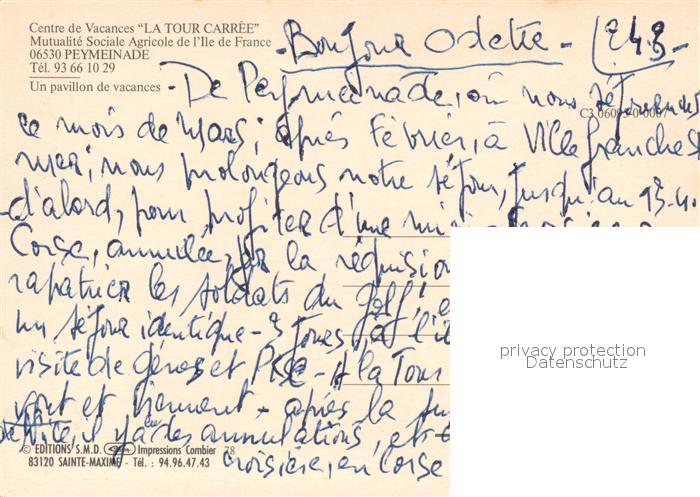 Centre de Vacances "LA TOUR CARRÉE"
Mutualité Sociale Agricole de l'Ile de France
06530 PEYMEINADE
Tél. 93 66 10 29
Un pavillon de vacances
- Bonjour Odette - 24.3
- De Peymeinade, où nous séjournons
C3 06095-0-0007
ce mois de Mars; après Février, à Villefranche s
mer; nous prolongeons notre séjour, jusqu'au 13-4.
d'abord, pour profiter d'une mini
Corse, annulée, par la
rapatrier les soldats du golf,
un séjour identique - 3 jours à l'
visite de Gênes et PISE - A la Tour
vont et viennent - après la
il y a des annulations, et
croisière, en Corse
privacy protection
Datenschutz
© EDITIONS S.M.D. Impressions Combier 78
83120 SAINTE-MAXIME - Tél. : 94.96.47.43